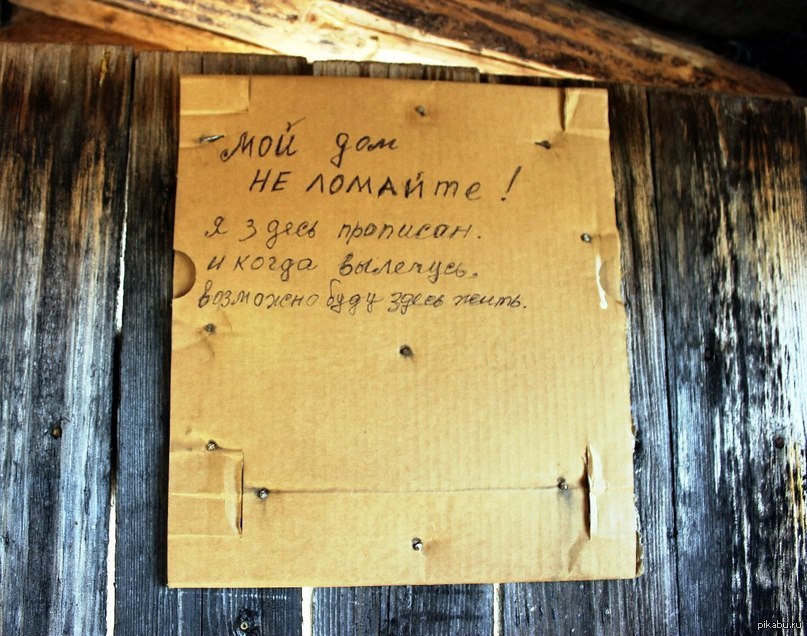 мой дом
не ломайте!
я здесь прописан.
и когда вылечусь.
возможно буду здесь жить.
pikabu.ru